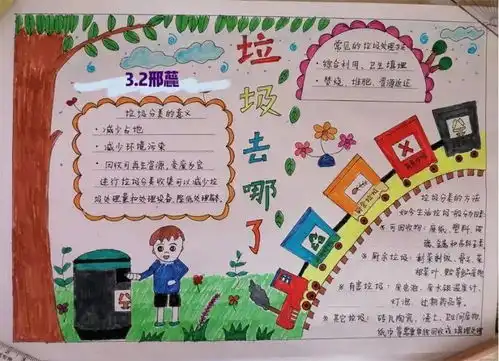 垃圾去哪了
3.2邢蕊
垃圾分类的意义
·减少占地
·减少环境污染
·回收可再生资源,变废为宝
进行垃圾分类收集可以减少垃
圾处理量和处理设备,降低处理成本
常见的垃圾处理方法
·综合利用、卫生填埋
·焚烧、堆肥、资源返还
垃圾分类的方法
如今生活垃圾一般分为四类
可回收物:废纸、塑料、玻
璃、金属和布料
厨余垃圾:剩菜剩饭、骨头、菜
根菜叶、果皮
有害垃圾:废电池、废水银温度计、
灯泡、过期药品等。
其它垃圾:砖瓦陶瓷、渣土、卫生间废物、
纸巾等